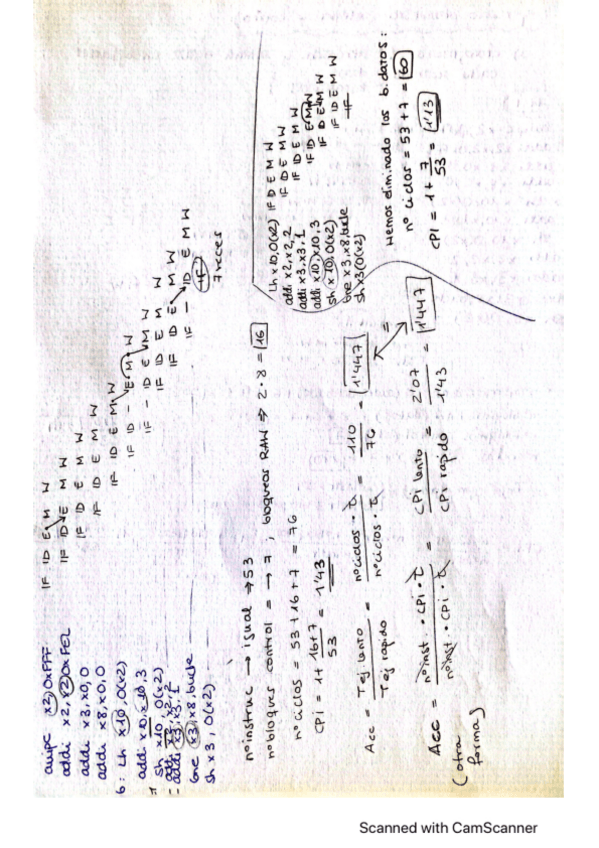 auipc x2, 0xFFF IF ID E M W
addi x2, x2, 0xFEL IF ID E M W
addi x3, x0, 0 IF ID E M W
addi x8, x0, 0 IF ID E M W
b: lh x10, 0(x2) IF ID E M W
addi x10, x10, 3 IF ID - E M W
sh x10, 0(x2) IF - ID E M W
addi x2, x2, 2 IF ID E M W
addi x3, x3, 1 IF ID E M W
bne x3, x8, bucle IF - ID E M W
sh x3, 0(x2) IF
7 veces
nº instruc → igual → 53
nº bloqueos control = → 7, bloqueos RAW → 2·8 = 16
nº ciclos = 53 + 16 + 7 = 76
CPI = 1 + 16+7 / 53 = 1'43
Acc = Tej lento / Tej rapido = nº ciclos · t / nº ciclos · t = 110 / 76 = 1'447
=
Acc = nº inst · CPI · t / nº inst · CPI · t = CPI lento / CPI rapido = 2'07 / 1'43 = 1'447
(otra forma)
lh x10, 0(x2) IF ID E M W
addi x2, x2, 2 IF ID E M W
addi x3, x3, 1 IF ID E M W
addi x10, x10, 3 IF ID E M W
sh x10, 0(x2) IF ID E M W
bne x3, x8, bucle IF ID E M W
sh x3, 0(x2) IF
Hemos eliminado los b. datos:
nº ciclos = 53 + 7 = 60
CPI = 1 + 7 / 53 = 1'13
Scanned with CamScanner